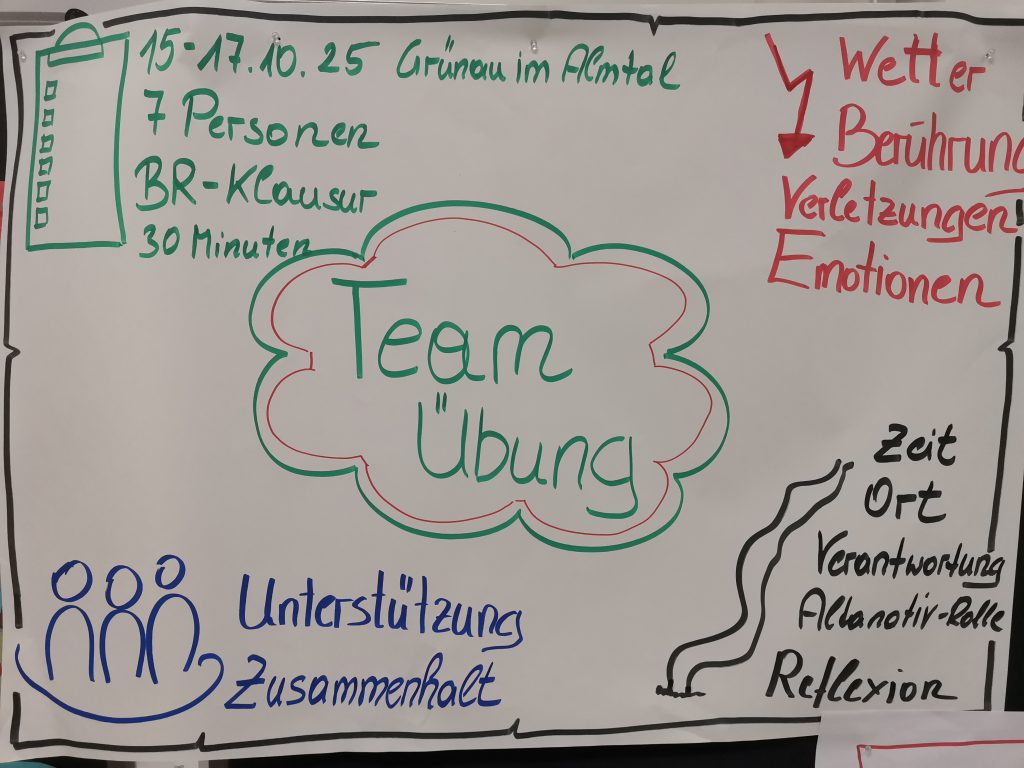 15-17.10.25 Grünau im Almtal
7 Personen
BR-Klausur
30 Minuten
Wetter
Berührung
Verletzungen
Emotionen
Team
Übung
Zeit
Ort
Verantwortung
Reflexion
Unterstützung
Zusammenhalt